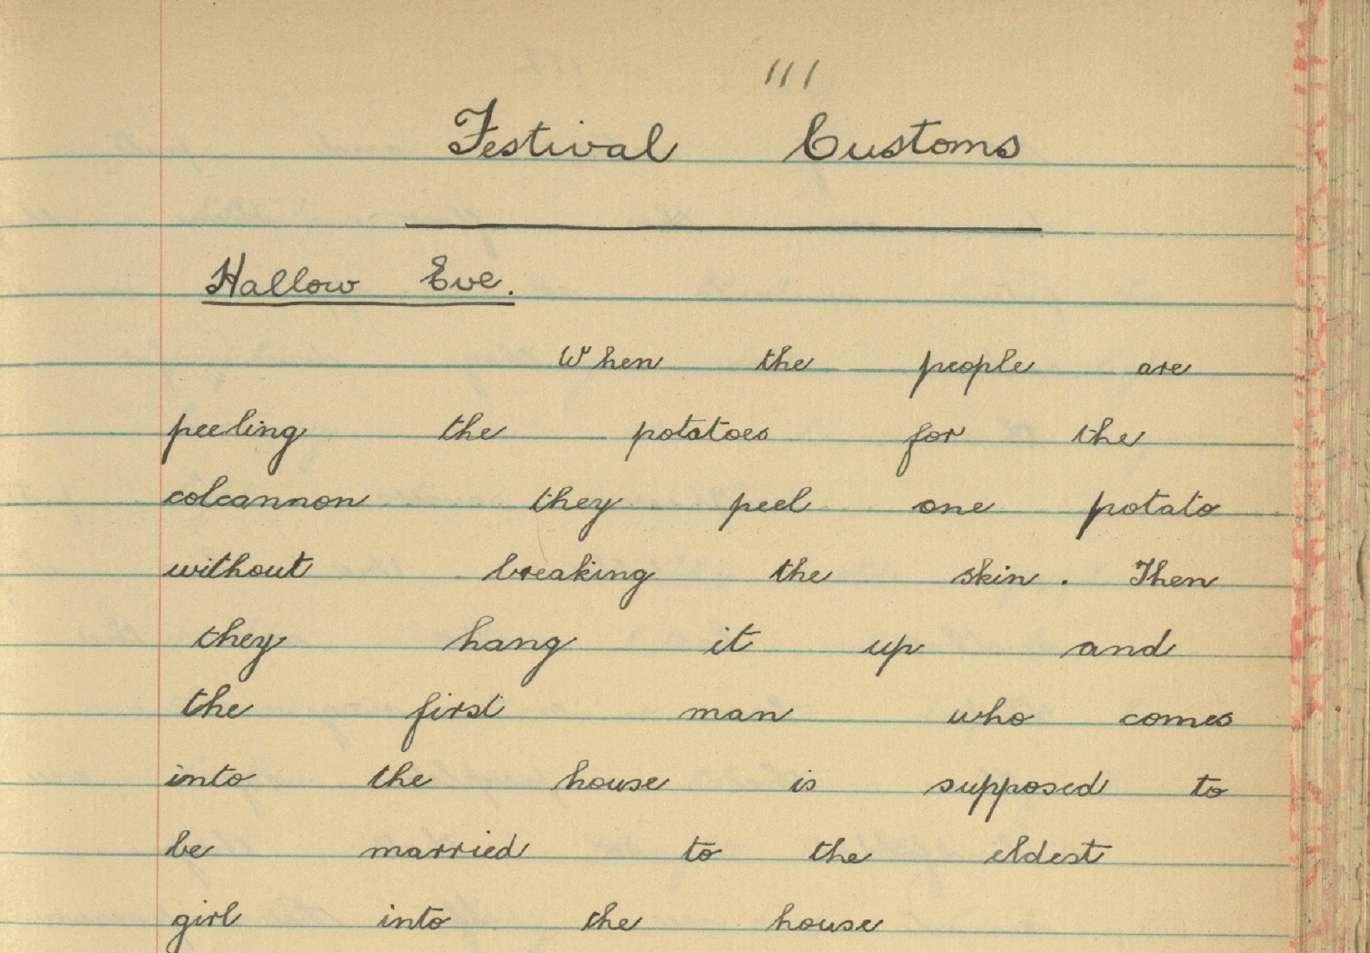 111
Festival Customs
Hallow Eve.
When the people are
peeling the potatoes for the
colcannon they peel one potato
without breaking the skin. Then
they hang it up and
the first man who comes
into the house is supposed to
be married to the eldest
girl into the house